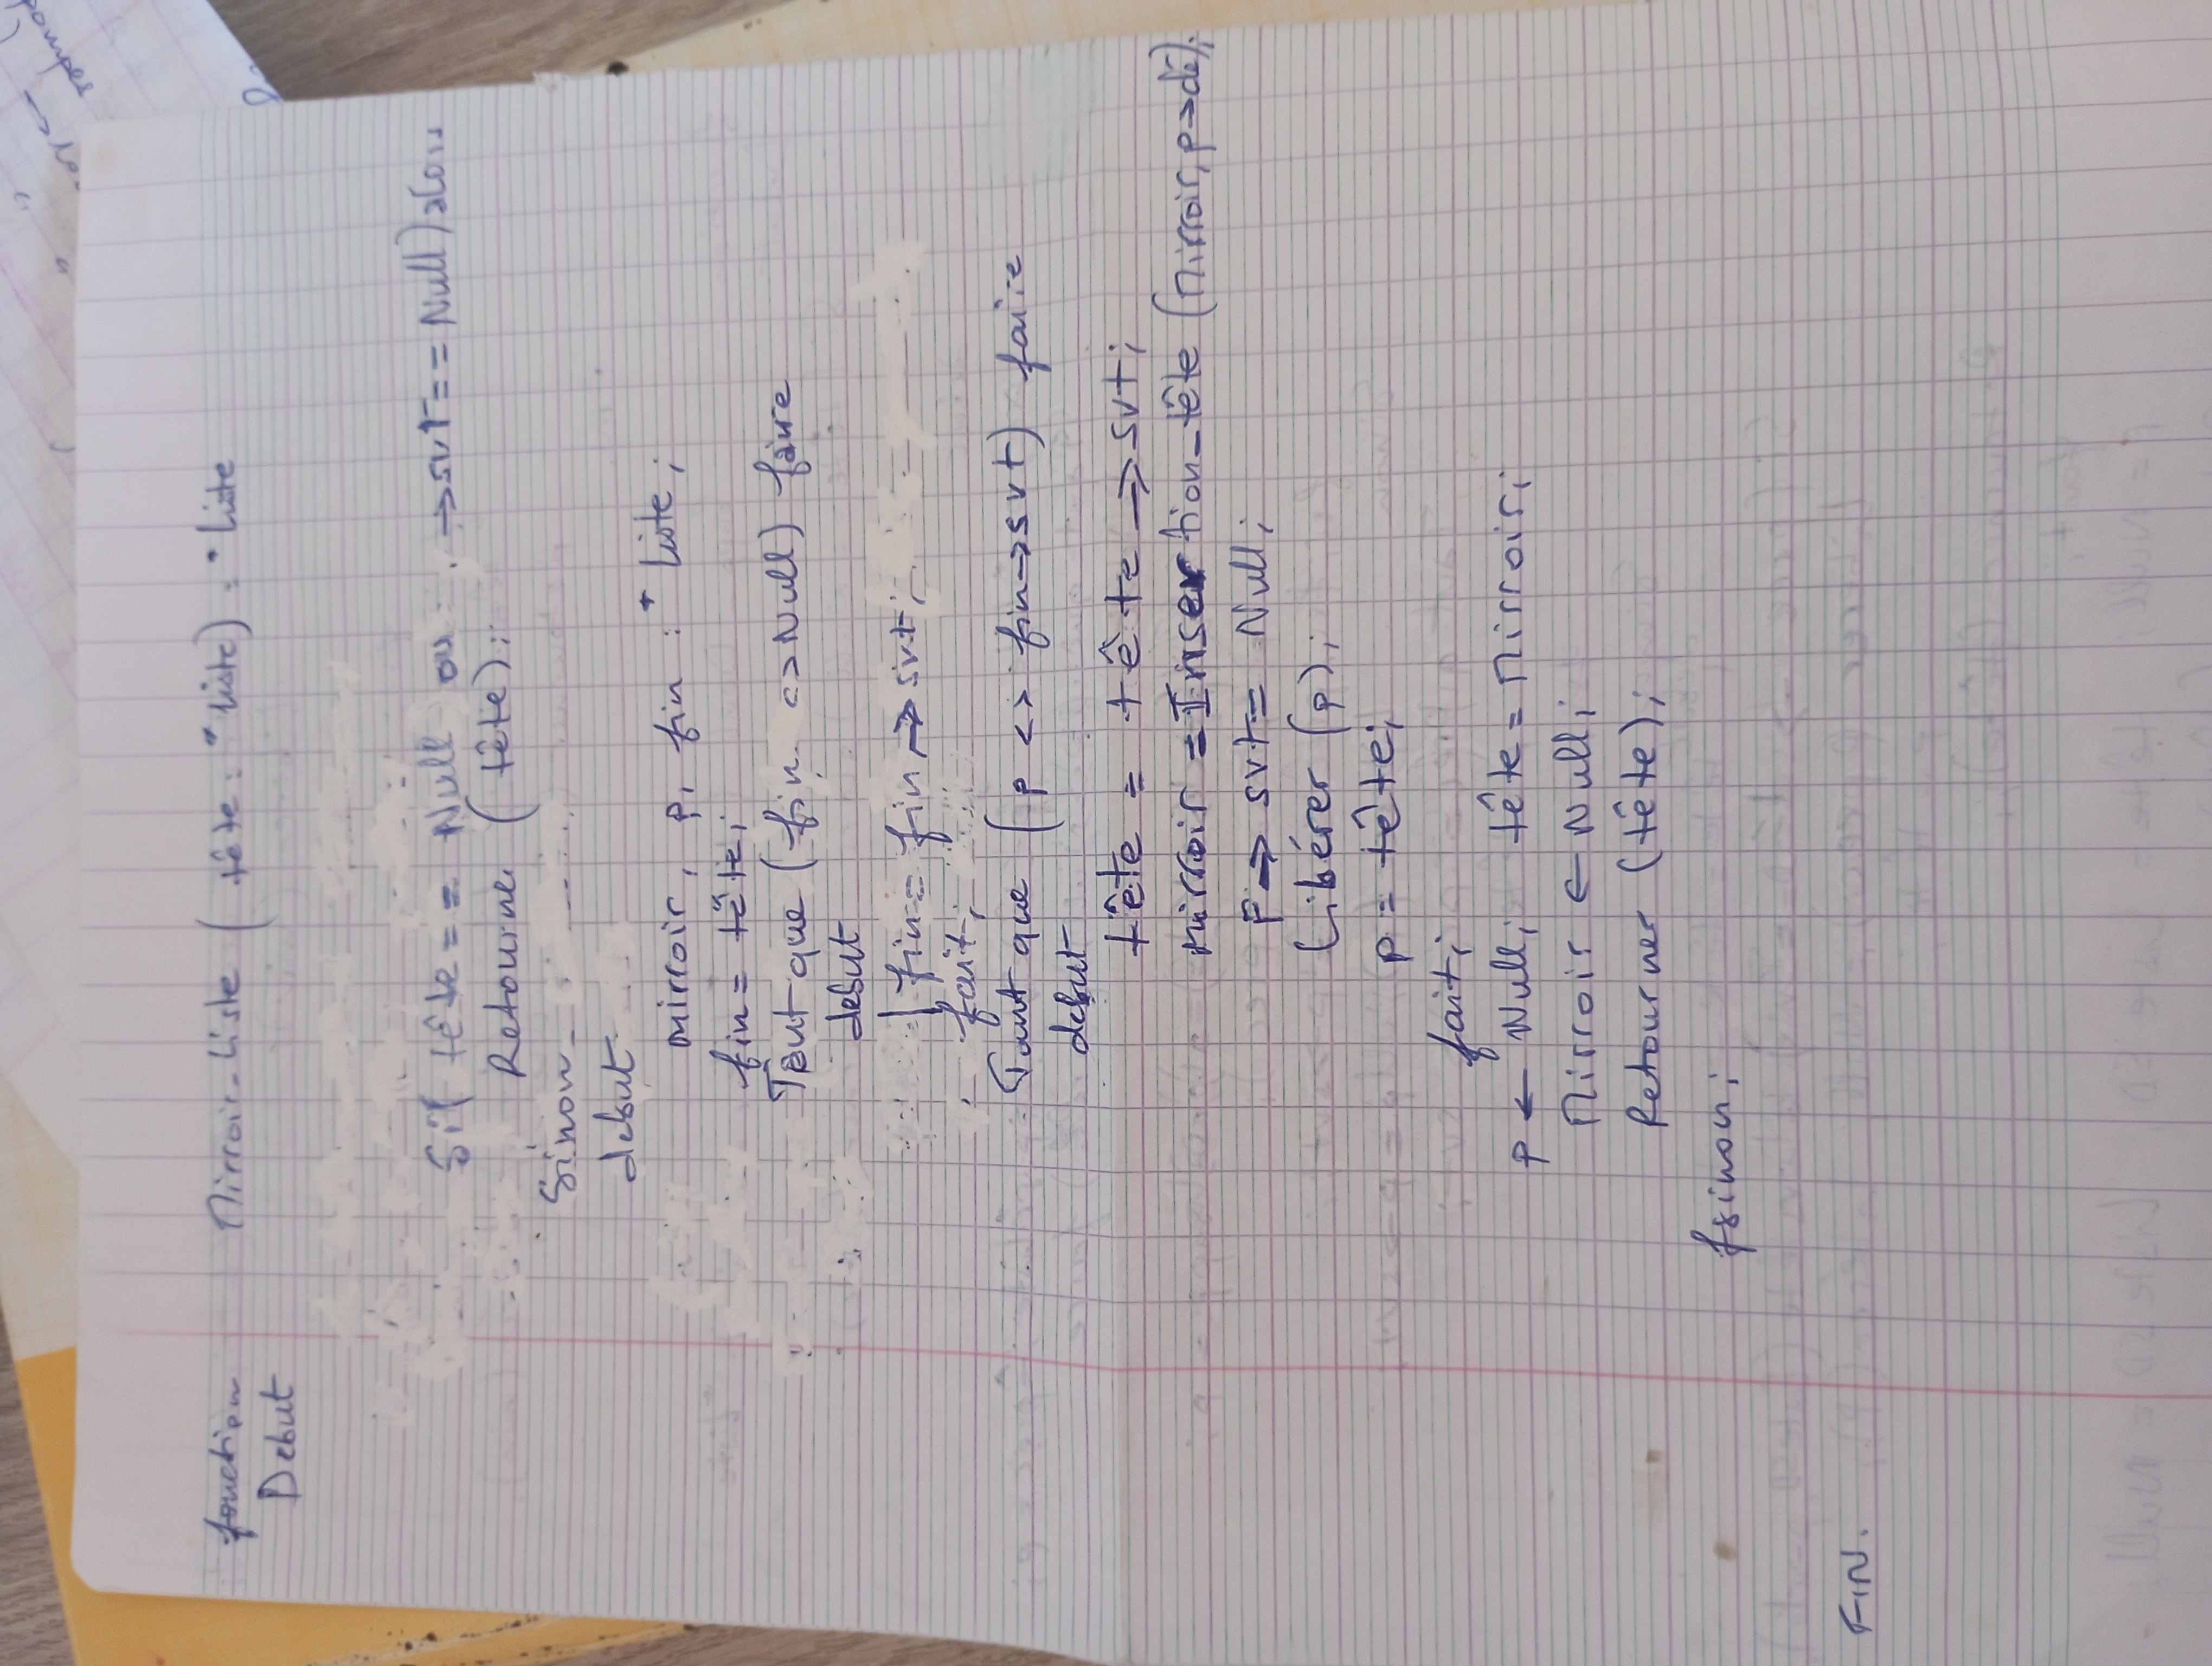 fonction Mirroir_liste (tête : *liste) : *liste
Debut
Si( tête == Null ou →svt == Null) alors
Retourner (tête);
Sinon
debut
mirroir, p, fin : *liste;
fin = tête;
Tant que (fin <> Null) faire
debut
fin = fin → svt;
fait;
Tant que (p <> fin→svt) faire
debut
tête = tête → svt;
mirroir = Insertion_tête (Mirroir, p→clé);
P→ svt = Null;
Libérer (p);
p = tête;
fait;
p ← Null; tête = Mirroir;
Mirroir ← Null;
Retourner (tête);
fsinon;
FIN.